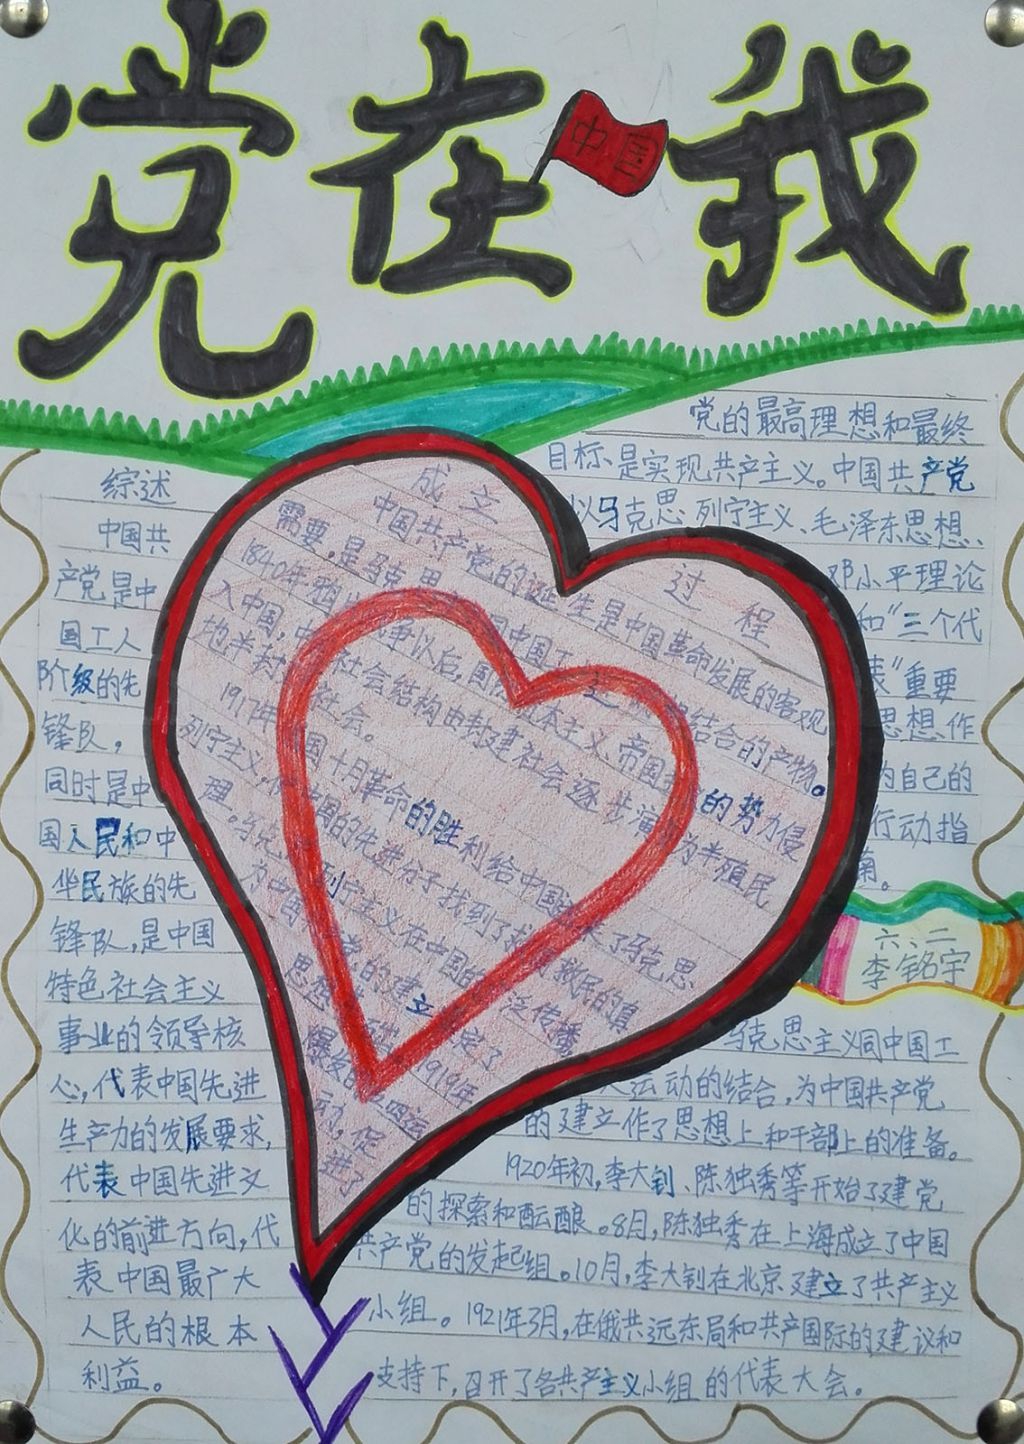 党在我
中国
综述
中国共
产党是中
国工人
阶级的先
锋队,
同时是中
国人民和中
华民族的先
锋队,是中国
特色社会主义
事业的领导核
心,代表中国先进
生产力的发展要求,
代表中国先进文
化的前进方向,代
表中国最广大
人民的根本
利益。
成立过程
中国共产党的诞生是中国革命发展的客观
需要,是马克思
结合的产物。
1840年鸦片战争以后,国际资本主义、帝国主义的势力侵
入中国,中国社会结构由封建社会逐步演变为半殖民
地半封建社会。
1917年俄国十月革命的胜利给中国送来了马克思
列宁主义,使中国的先进分子找到了救国救民的真
理。马克思列宁主义在中国的广泛传播
为中国共产党的建立奠定了
思想基础。1919年
爆发的五四运
动,促
进了
党的最高理想和最终
目标是实现共产主义。中国共产党
以马克思列宁主义、毛泽东思想、
邓小平理论
和“三个代
表”重要
思想作
为自己的
行动指
南。
六、二
李铭宇
马克思主义同中国工
人运动的结合,为中国共产党
的建立作了思想上和干部上的准备。
1920年初,李大钊、陈独秀等开始了建党
的探索和酝酿。8月,陈独秀在上海成立了中国
共产党的发起组。10月,李大钊在北京建立了共产主义
小组。1921年3月,在俄共远东局和共产国际的建议和
支持下,召开了各共产主义小组的代表大会。